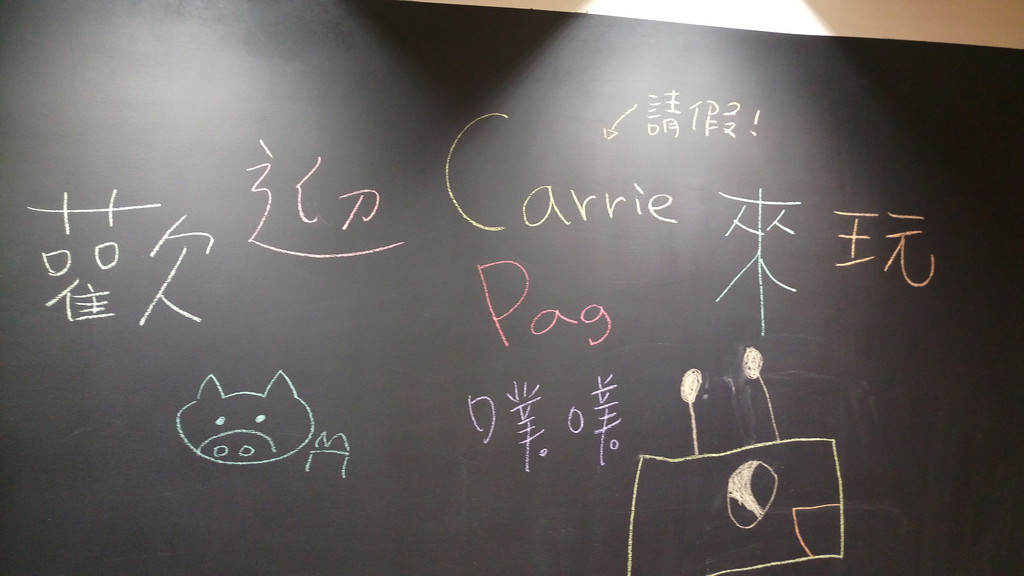 請假!
歡迎 Carrie 來玩
Pag
噗噗